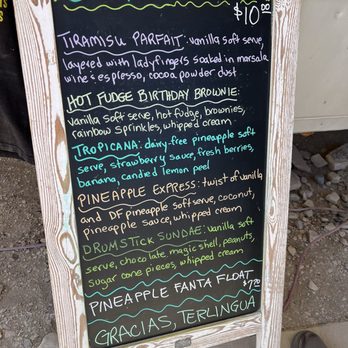 $10.00
TIRAMISU PARFAIT: vanilla soft serve,
layered with ladyfingers soaked in marsala
wine & espresso, cocoa powder dust
HOT FUDGE BIRTHDAY BROWNIE:
vanilla soft serve, hot fudge, brownies,
rainbow sprinkles, whipped cream
TROPICANA: dairy-free pineapple soft
serve, strawberry sauce, fresh berries,
banana, candied lemon peel
PINEAPPLE EXPRESS: twist of vanilla
and DF pineapple soft serve, coconut,
pineapple sauce, whipped cream
DRUMSTICK SUNDAE: vanilla soft
serve, chocolate magic shell, peanuts,
sugar cone pieces, whipped cream
PINEAPPLE FANTA FLOAT
$7.00
GRACIAS, TERLINGUA